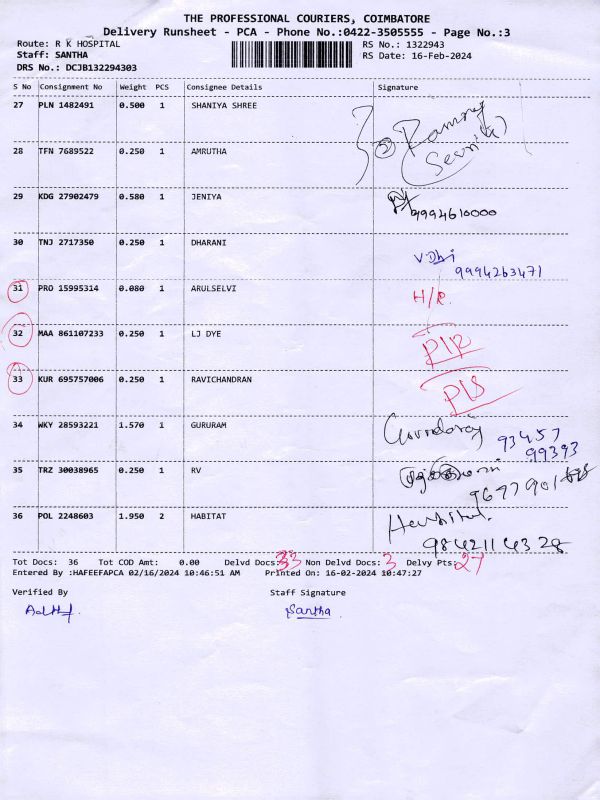 THE PROFESSIONAL COURIERS, COIMBATORE
Delivery Runsheet - PCA - Phone No.:0422-3505555 - Page No.:3
Route: R K HOSPITAL RS No.: 1322943
Staff: SANTHA RS Date: 16-Feb-2024
DRS No.: DCJB132294303
S No Consignment No Weight PCS Consignee Details Signature
27 PLN 1482491 0.500 1 SHANIYA SHREE
28 TFN 7689522 0.250 1 AMRUTHA
29 KDG 27902479 0.580 1 JENIYA
9994610000
30 TNJ 2717350 0.250 1 DHARANI
9994263471
31 PRO 15995314 0.080 1 ARULSELVI H/R.
32 MAA 861107233 0.250 1 LJ DYE
33 KUR 695757006 0.250 1 RAVICHANDRAN
34 WKY 28593221 1.570 1 GURURAM
93457
99393
35 TRZ 30038965 0.250 1 RV
36 POL 2248603 1.950 2 HABITAT
Tot Docs: 36 Tot COD Amt: 0.00 Delvd Docs: 33 Non Delvd Docs: 3 Delvy Pts: 27
Entered By :HAFEEFAPCA 02/16/2024 10:46:51 AM Printed On: 16-02-2024 10:47:27
Verified By Staff Signature
Santha